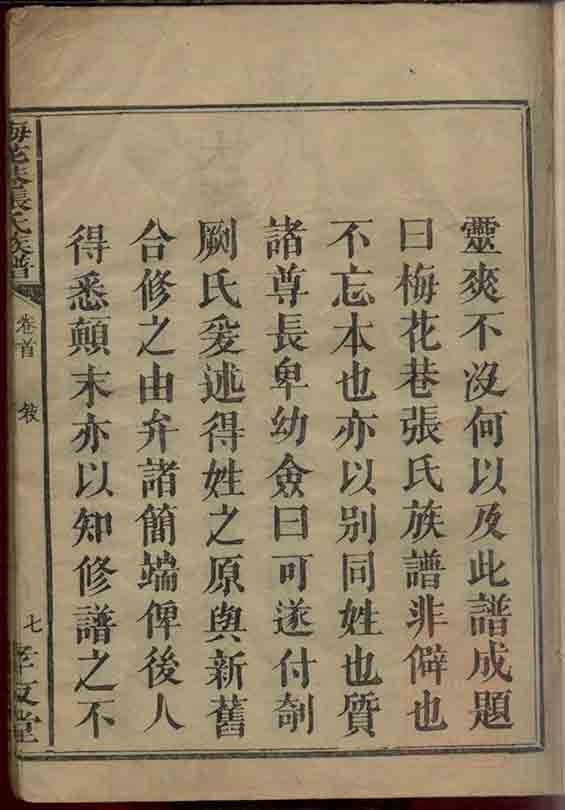 靈爽不沒何以及此譜成題
曰梅花巷張氏族譜非僻也
不忘本也亦以别同姓也質
諸尊長卑幼僉曰可遂付剞
劂氏爰述得姓之原與新舊
合修之由弁諸簡端俾後人
得悉顛末亦以知修譜之不
梅花巷張氏族譜
卷首 敘
七
孝友堂